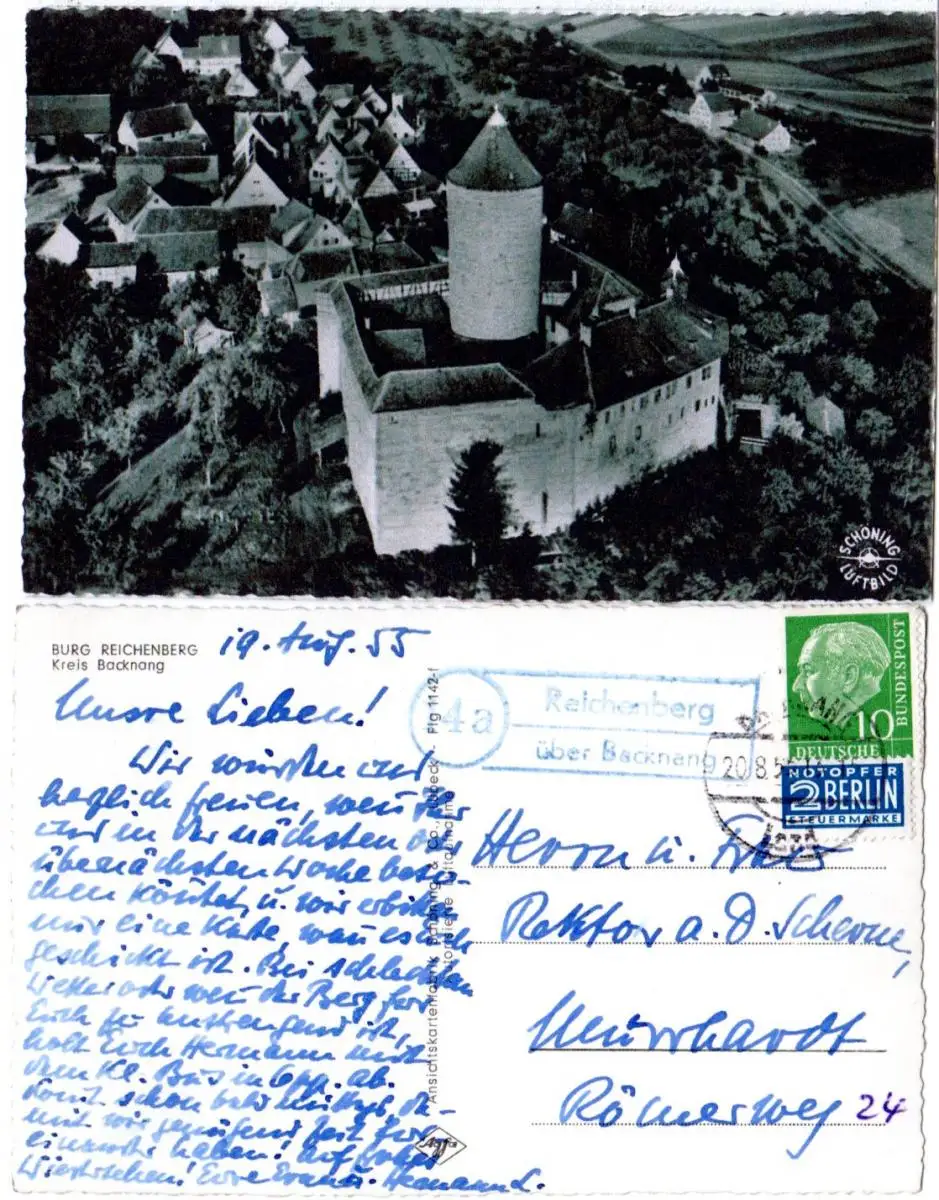 SCHÖNING
LUFTBILD
BURG REICHENBERG
Kreis Backnang
19. Aug. 55
4a
Reichenberg
über Backnang
20.8.5
BUNDESPOST
10
DEUTSCHE
NOTOPFER
2 BERLIN
STEUERMARKE
Unsre Lieben!
Wir würden uns
herzlich freuen, wenn Ihr
uns in der nächsten od.
übernächsten Woche besu-
chen könntet, u. wir erbitten
nur eine Karte, wann es Euch
geschickt ist. Bei schlechtem
Wetter oder wenn der Berg für
Euch zu anstrengend ist,
holt Euch Hermann mit
dem Kl. Bus in Opp. ab.
Kommt schon bald mittags, da-
mit wir genügend Zeit für
einander haben! Auf frohes
Wiedersehen! Eure Hermann L.
Ansichtskartenfabrik Schöning & Co., Lübeck · Flg 1142-f
Autorisierte Luftaufnahme
Agfa
Herrn u. Frau
Rektor a. D.
Murrhardt
Römerweg 24